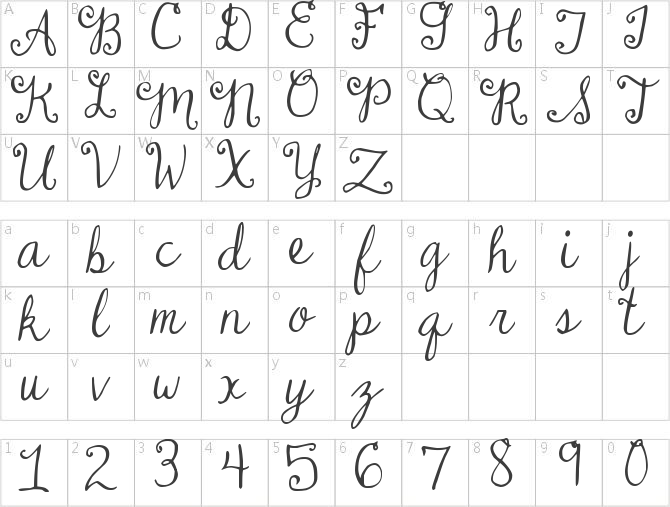 A B C D E F G H I J
A B C D E F G H I J
K L M N O P Q R S T
K L M N O P Q R S T
U V W X Y Z
U V W X Y Z
a b c d e f g h i j
a b c d e f g h i j
k l m n o p q r s t
k l m n o p q r s t
u v w x y z
u v w x y z
1 2 3 4 5 6 7 8 9 0
1 2 3 4 5 6 7 8 9 0